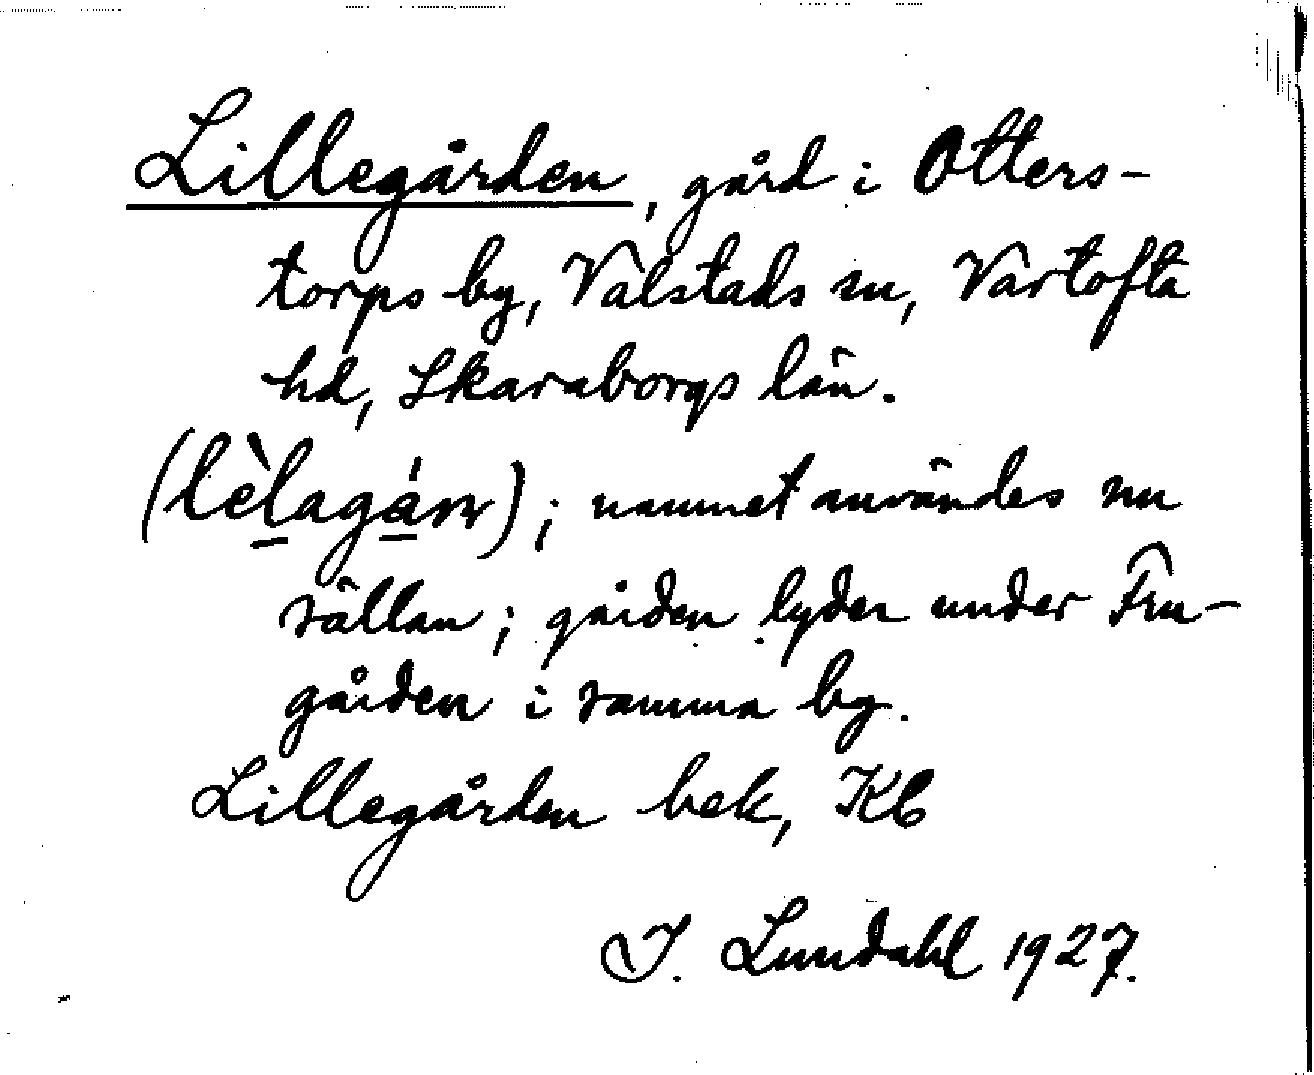 Lillegården, gård i Otters-
torps by, Valstads sn, Vartofta
hd, Skaraborgs län.
(lèlagárn); namnet användes nu
sällan; gården lyder under Fru-
gården i samma by.
Lillegården bek, Kb
I. Lundahl 1927.